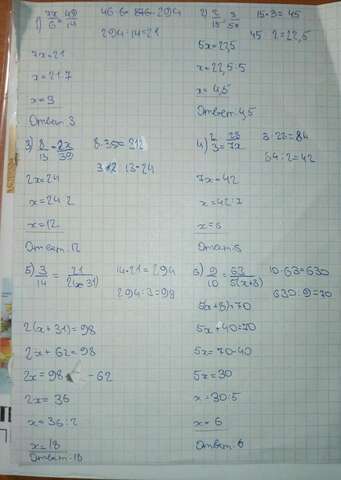 1) 7x/6 = 49/14 49·6= 294
294:14=21
7x=21
x=21:7
x=3
Ответ 3
2) 2/15 3/5x 15·3=45
45:2=22,5
5x=22,5
x=22,5:5
x=4,5
Ответ:4,5
3) 8/13 = 2x/39 8·39=312
312:13=24
2x=24
x=24:2
x=12
Ответ:12
4) 2/3=28/7x 3·28=84
84:2=42
7x=42
x=42:7
x=6
Ответ:6
5) 3/14 = 21/2(x+31) 14·21=294
294:3=98
2(x+31)=98
2x+62=98
2x=98 -62
2x=36
x=36:2
x=18
Ответ:18
6) 9/10 = 63/5(x+8) 10·63=630
630:9=70
5(x+8)=70
5x+40=70
5x=70-40
5x=30
x=30:5
x=6
Ответ:6